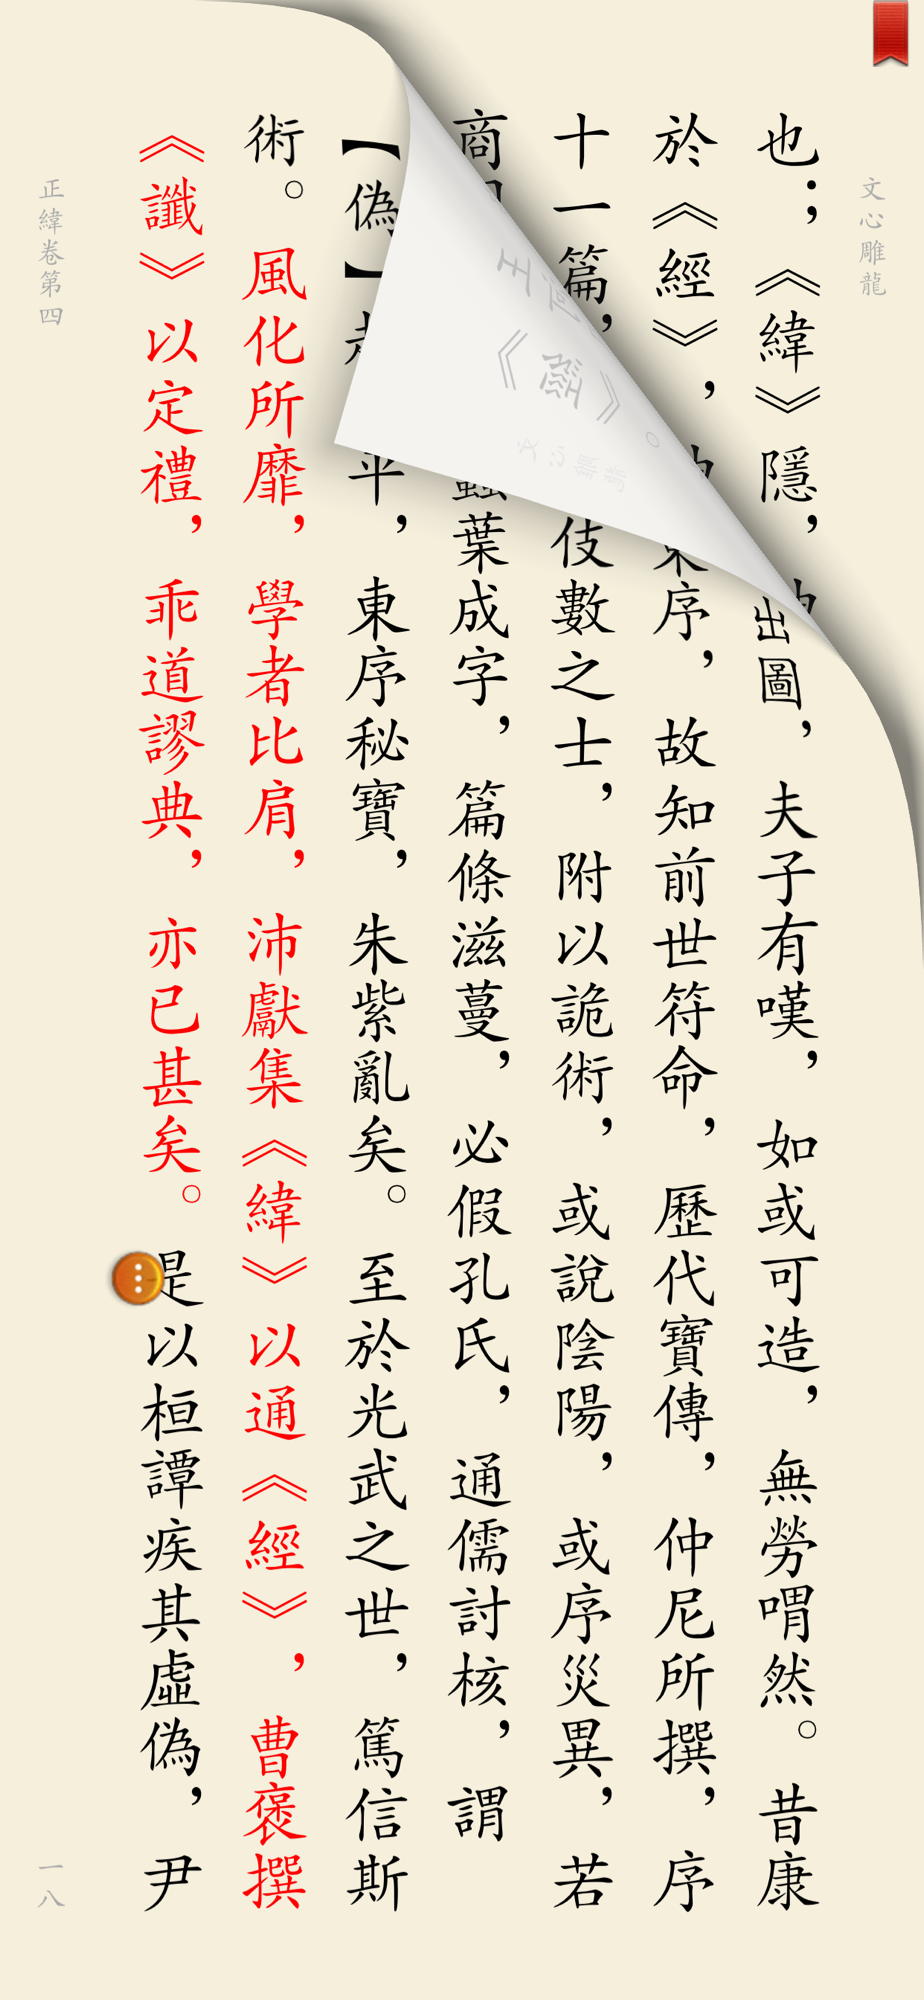 文心雕龍
也；《緯》隱，出圖，夫子有嘆，如或可造，無勞喟然。昔康
於《經》，東序，故知前世符命，歷代寶傳，仲尼所撰，序
十一篇，伎數之士，附以詭術，或說陰陽，或序災異，若
商蟲葉成字，篇條滋蔓，必假孔氏，通儒討核，謂
【偽】平，東序秘寶，朱紫亂矣。至於光武之世，篤信斯
術。風化所靡，學者比肩，沛獻集《緯》以通《經》，曹褒撰
《讖》以定禮，乖道謬典，亦已甚矣。是以桓譚疾其虛偽，尹
正緯卷第四
一八